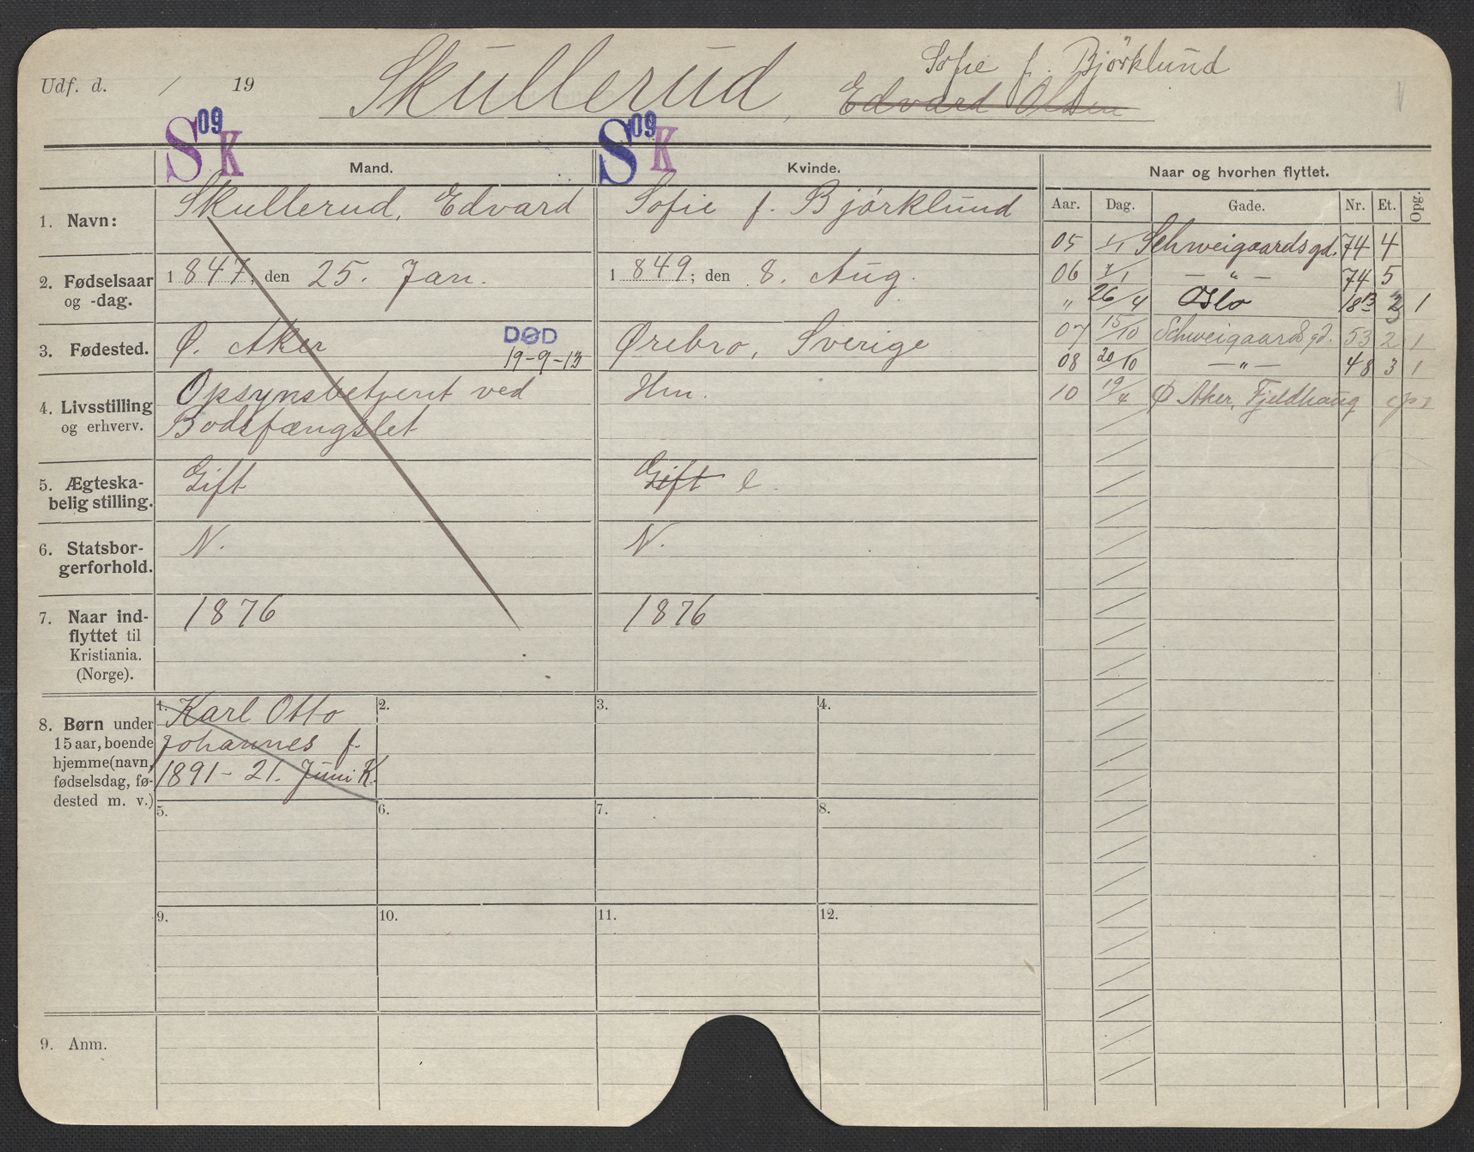 Udf. d. / 19
Skullerud, Edvard Olsen
Sofie f. Bjørklund
S 09 K
S 09 K
Mand.
Kvinde.
Naar og hvorhen flyttet.
Aar. Dag. Gade. Nr. Et. Opg.
1. Navn: Skullerud, Edvard
Sofie f. Bjørklund
2. Fødselsaar og -dag.
1847; den 25. Jan.
1849; den 8. Aug.
3. Fødested. Ø. Aker
DØD
19-9-13
Ørebro, Sverige
4. Livsstilling og erhverv.
Opsynsbetjent ved
Bodsfængslet
Hm.
5. Ægteska-
belig stilling.
Gift
Gift e
6. Statsbor-
gerforhold.
N.
N.
7. Naar ind-
flyttet til
Kristiania.
(Norge).
1876
1876
8. Børn under
15 aar, boende
hjemme (navn,
fødselsdag, fø-
dested m. v.)
1. Karl Otto
Johannes f.
1891 - 21. Juni K.
2.
3.
4.
5.
6.
7.
8.
9.
10.
11.
12.
9. Anm.
05 1/1 Schweigaardsgd. 74 4
06 1/1 — " — 74 5
" 26/4 Oslo 18 13 2 1
07 15/10 Schweigaardsgd. 53 2 1
08 20/10 — " — 48 3 1
10 19/4 Ø Aker, Fjeldhaug